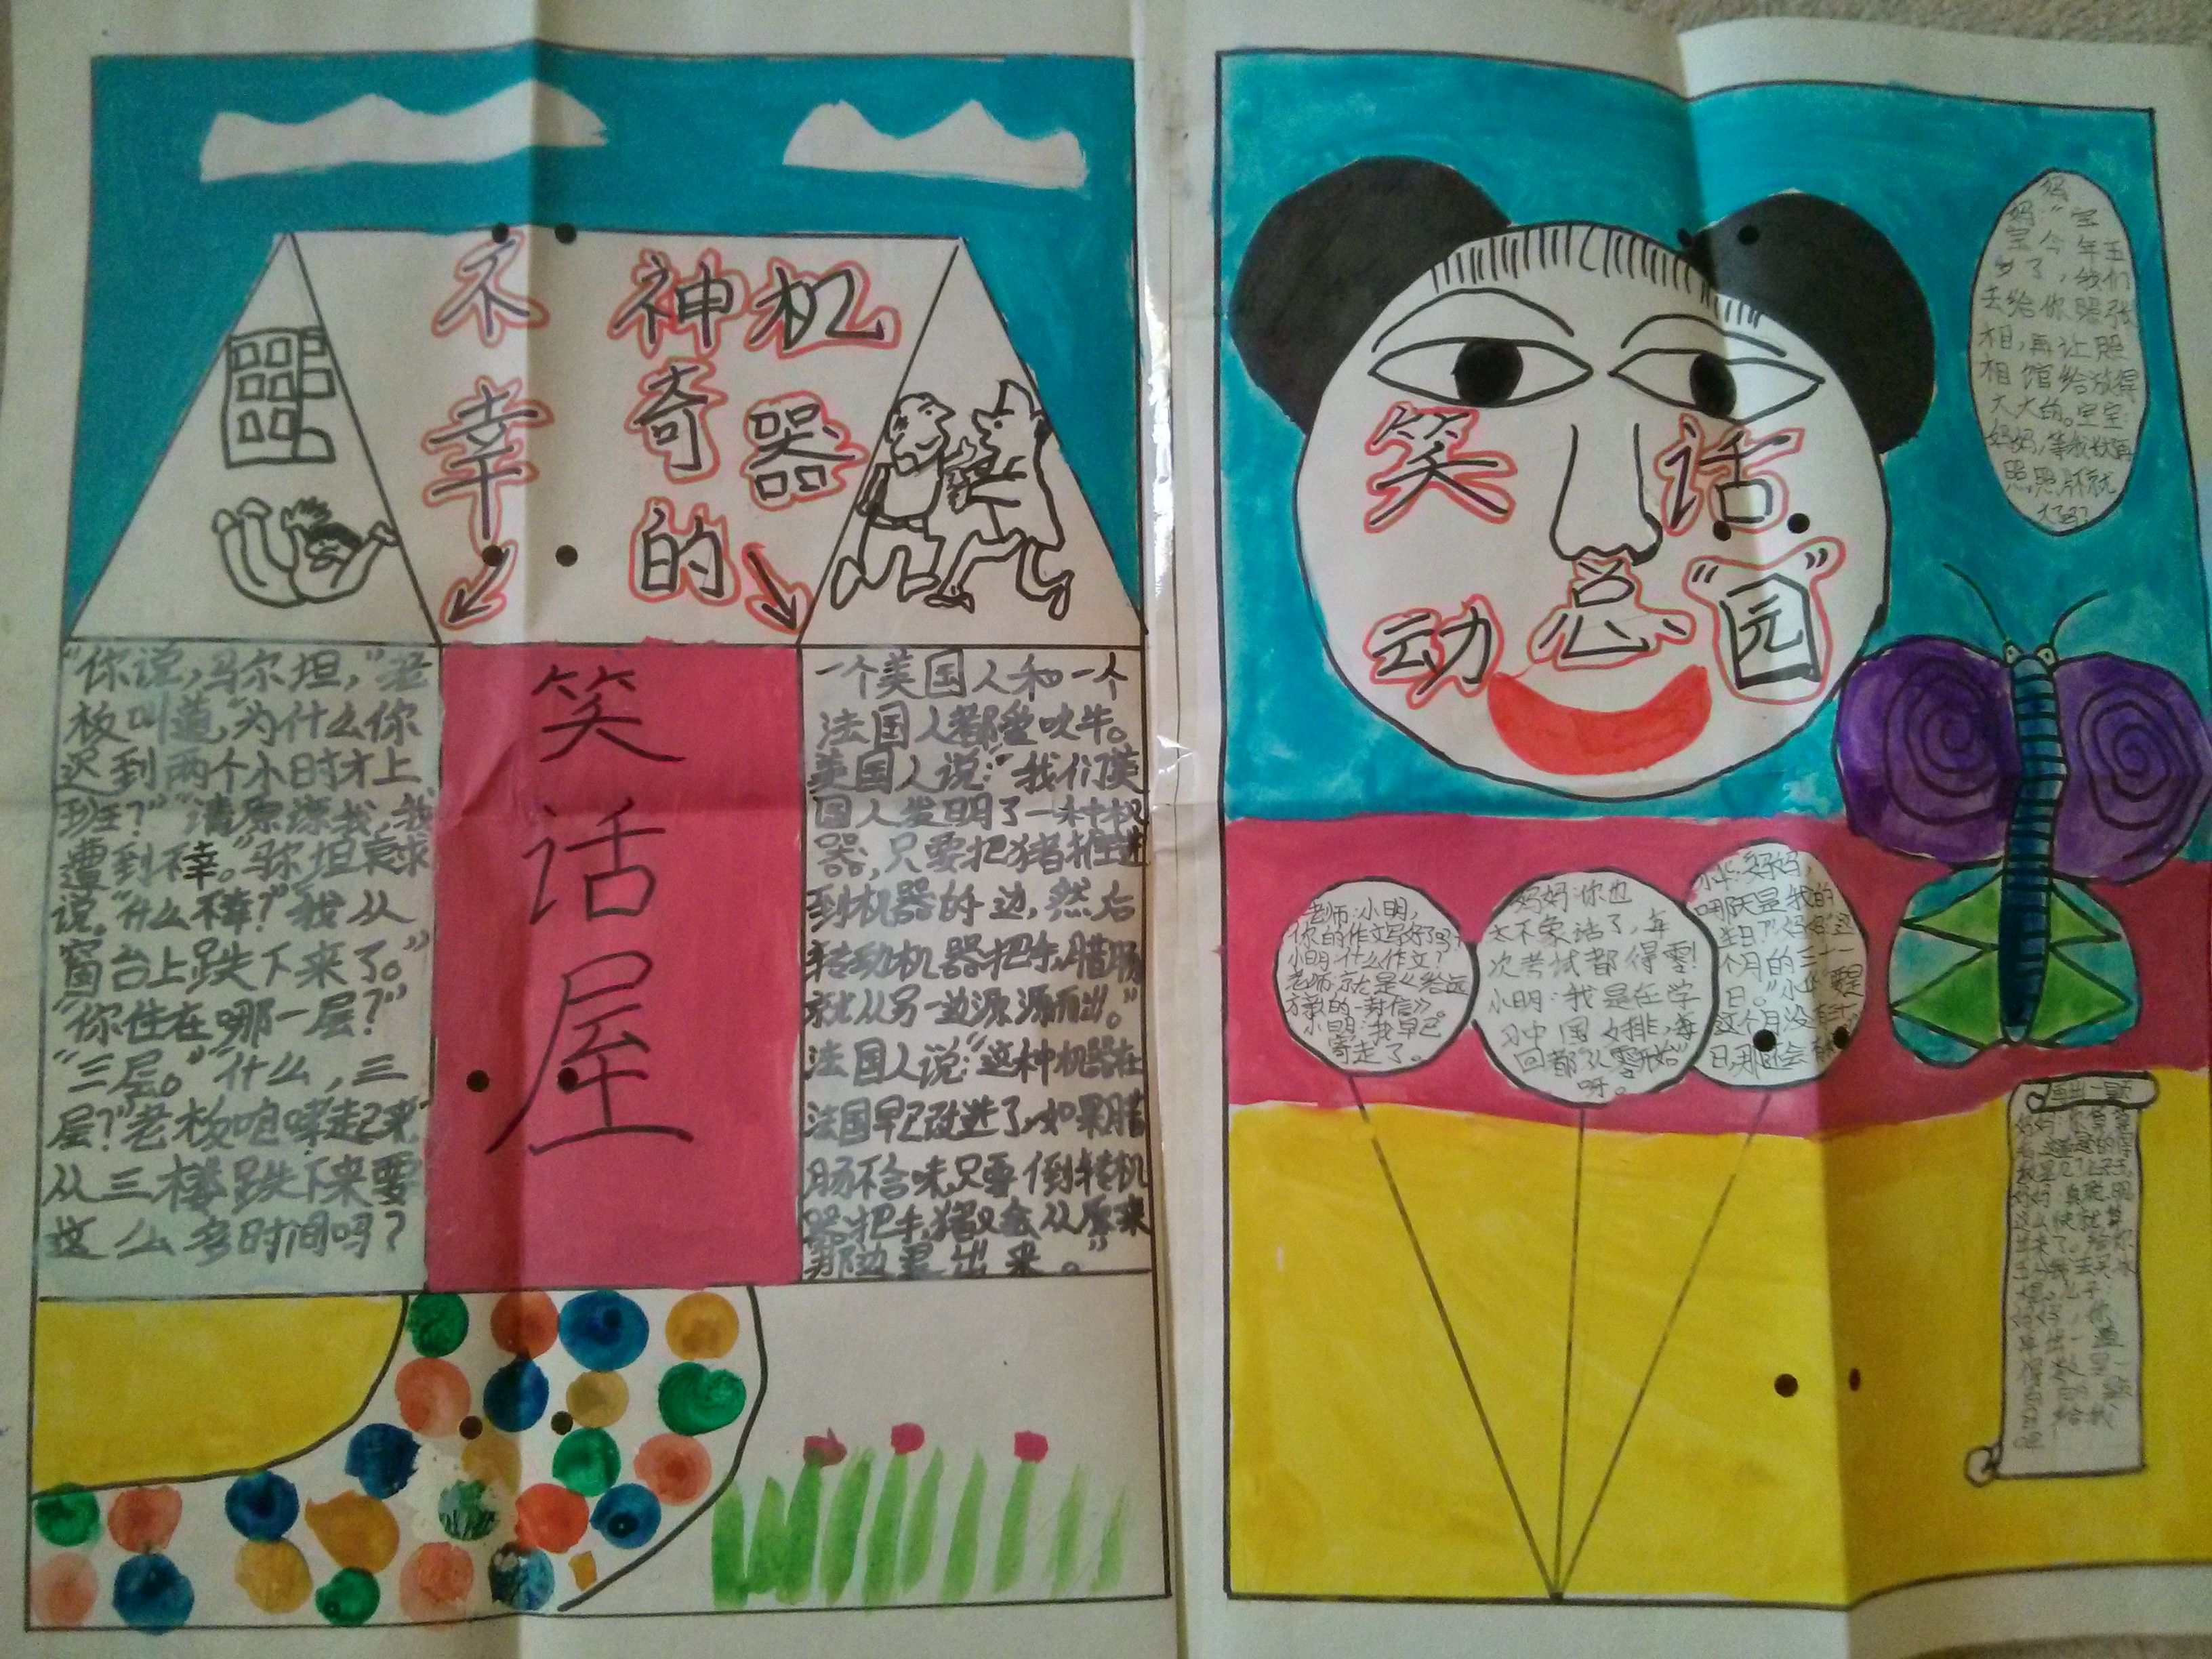 不幸
神奇的
机器
笑话屋
“你说,马尔坦,”老
板叫道,“为什么你
迟到两个小时才上
班?”“请原谅我,我
遭到不幸。”马尔坦哀求
说。“什么不幸?”“我从
窗台上跌下来了。”
“你住在哪一层?”
“三层。”“什么,三
层?”老板咆哮走起来
从三楼跌下来要
这么多时间吗?
一个美国人和一个
法国人都爱吹牛。
美国人说:“我们美
国人发明了一种机
器,只要把猪推进
到机器的 边,然后
转动机器把手,腊肠
就从另一边源源而出。”
法国人说:“这种机器在
法国早已改进了,如果腊
肠不合味,只要倒转机
器把手,猪又会从原来
那边退出来。”
笑话
动总“园”
妈
妈:“宝
宝今年五
岁了,我们
去给你照张
相,再让照
相馆给放得
大大的。宝宝:
妈妈,等我 再
照,照
大吗?
老师:小明,
你的作文写好了吗?
小明:什么作文?
老师:就是《给远
方 的一封信》。
小明:我早已
寄走了。
妈妈:你也
太不象话了,每
次考试都得零!
小明:我是在学
习中国女排,每
回都“从零开始”
呀。
小华:妈妈,
哪天是我的
生日?”妈妈:“这
个月的三十一
日。”小华:“要是
这个月没有三十一
日,那